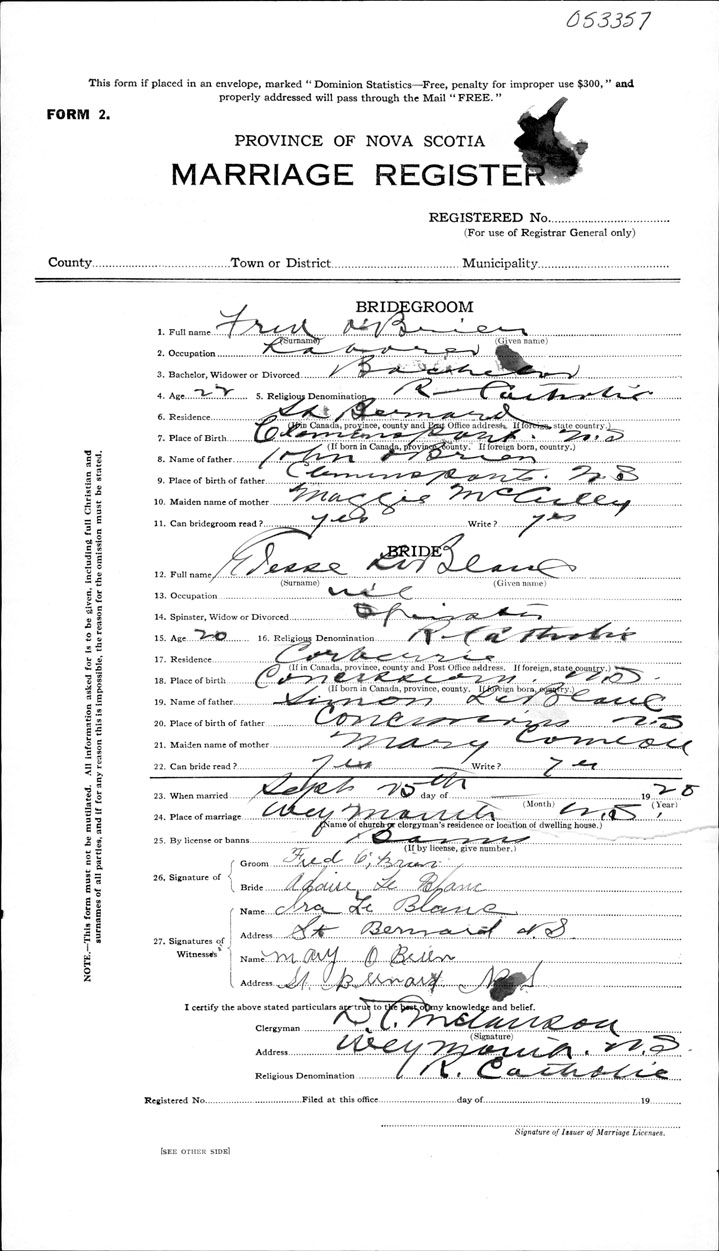 053357
This form if placed in an envelope, marked "Dominion Statistics—Free, penalty for improper use $300," and
properly addressed will pass through the Mail "FREE."
FORM 2.
PROVINCE OF NOVA SCOTIA
MARRIAGE REGISTER
REGISTERED No.
(For use of Registrar General only)
County Town or District Municipality
BRIDEGROOM
1. Full name Fred O'Brien
(Surname) (Given name)
2. Occupation Laborer
3. Bachelor, Widower or Divorced Bachelor
4. Age 22 5. Religious Denomination R Catholic
6. Residence St Bernard
(If in Canada, province, county and Post Office address. If foreign, state country.)
7. Place of Birth N.S
(If born in Canada, province, county. If foreign born, country.)
8. Name of father John O'Brien
9. Place of birth of father N.S
10. Maiden name of mother Maggie McCulley
11. Can bridegroom read? yes Write? yes
BRIDE
12. Full name LeBlanc
(Surname) (Given name)
13. Occupation nil
14. Spinster, Widow or Divorced Spinster
15. Age 20 16. Religious Denomination R. Catholic
17. Residence Corberrie
(If in Canada, province, county and Post Office address. If foreign, state country.)
18. Place of birth Concession. N.S.
(If born in Canada, province, county. If foreign born, country.)
19. Name of father Simon LeBlanc
20. Place of birth of father N.S
21. Maiden name of mother Mary Comeau
22. Can bride read? Yes Write? Yes
23. When married Sept 25th day of 1928
(Month) (Year)
24. Place of marriage Weymouth N.S.
(Name of church or clergyman's residence or location of dwelling house.)
25. By license or banns Banns
(If by license, give number.)
26. Signature of
Groom Fred O'Brien
Bride Le Blanc
27. Signatures of Witnesses
Name Ira Le Blanc
Address St Bernard N.S.
Name Mary O Brien
Address St Bernard NS
I certify the above stated particulars are true to the best of my knowledge and belief.
Clergyman
(Signature)
Address Weymouth. N.S.
Religious Denomination R. Catholic
Registered No. Filed at this office day of 19
Signature of Issuer of Marriage Licenses.
[SEE OTHER SIDE]
NOTE.—This form must not be mutilated. All information asked for is to be given, including full Christian and
surnames of all parties, and if for any reason this is impossible, the reason for the omission must be stated.